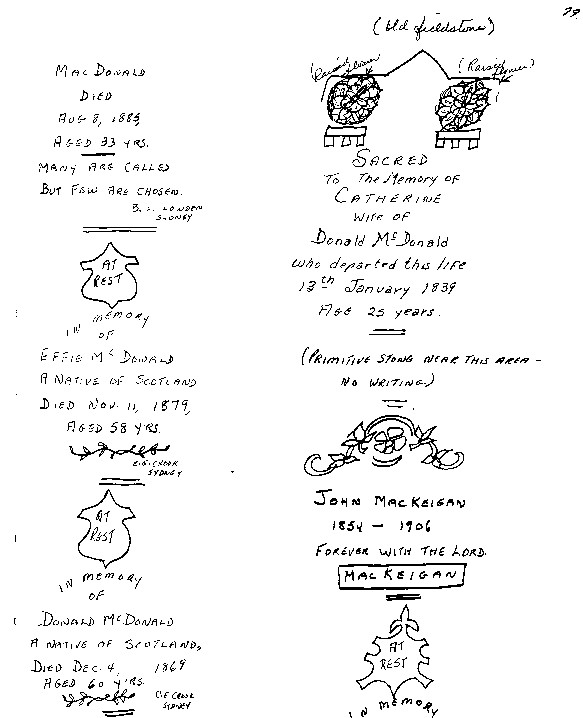 MACDONALD
DIED
AUG 8, 1885,
AGED 33 YRS.
MANY ARE CALLED
BUT FEW ARE CHOSEN.
LONDEN
SYDNEY
AT
REST
IN MEMORY
OF
EFFIE McDONALD
A NATIVE OF SCOTLAND
DIED NOV. 11, 1879,
AGED 58 YRS.
CROOK
SYDNEY
AT
REST
IN MEMORY
OF
DONALD McDONALD
A NATIVE OF SCOTLAND,
DIED DEC. 4, 1869
AGED 60 YRS.
CROOK
SYDNEY
(Old fieldstone)
(Raised flower) (Raised flower)
SACRED
TO The Memory OF
CATHERINE
WIFE OF
Donald McDonald
who departed this life
13th January 1839
AGE 25 years.
(PRIMITIVE STONE NEAR THIS AREA -
NO WRITING.)
JOHN MACKEIGAN
1854 - 1906
FOREVER WITH THE LORD.
MACKEIGAN
AT
REST
IN MEMORY